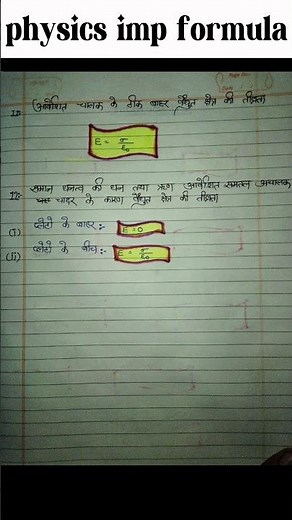 physics imp formula
आवेशित चालक के ठीक बाहर वैद्युत क्षेत्र की तीव्रता
E = σ/ε₀
समान घनत्व की धन तथा ऋण आवेशित समतल अचालक
चादर के कारण वैद्युत क्षेत्र की तीव्रता
(i) प्लेटों के बाहर :- E = 0
(ii) प्लेटों के बीच :- E = σ/ε₀